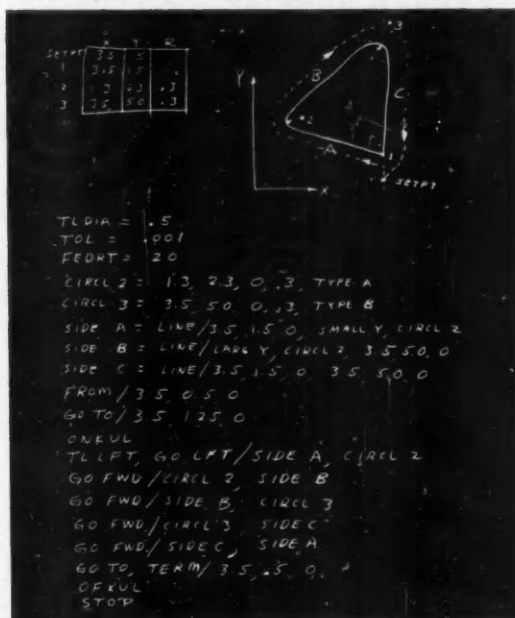 X Y R
SETPT 3.5 .5
3.5 1.5
2 1.3 2.3 .3
3 3.5 5.0 .3
Y
X
B
C
A
2
3
1
SETPT
TLDIA = .5
TOL = .001
FEDRT = 20
CIRCL 2 = 1.3, 2.3, 0, .3, TYPE A
CIRCL 3 = 3.5, 5.0, 0, .3, TYPE B
SIDE A = LINE/3.5, 1.5, 0, SMALL Y, CIRCL 2
SIDE B = LINE/LARG Y, CIRCL 2, 3.5, 5.0, 0
SIDE C = LINE/3.5, 1.5, 0, 3.5, 5.0, 0
FROM/3.5, 0.5, 0
GO TO/3.5, 1.25, 0
ONKUL
TL LFT, GO LFT/SIDE A, CIRCL 2
GO FWD/CIRCL 2, SIDE B
GO FWD/SIDE B, CIRCL 3
GO FWD/CIRCL 3, SIDE C
GO FWD/SIDE C, SIDE A
GO TO, TERM/3.5, .5, 0,
OFKUL
STOP